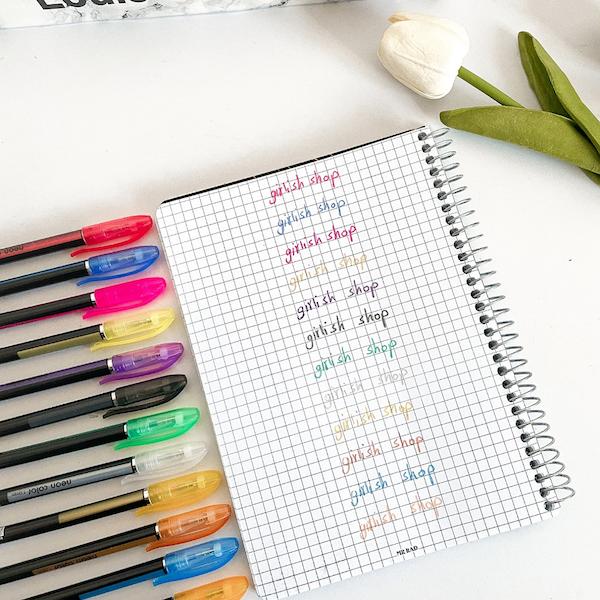 girlish shop
girlish shop
girlish shop
girlish shop
girlish shop
girlish shop
girlish shop
girlish shop
girlish shop
girlish shop
girlish shop
girlish shop
MR RAD
neon color
neon color